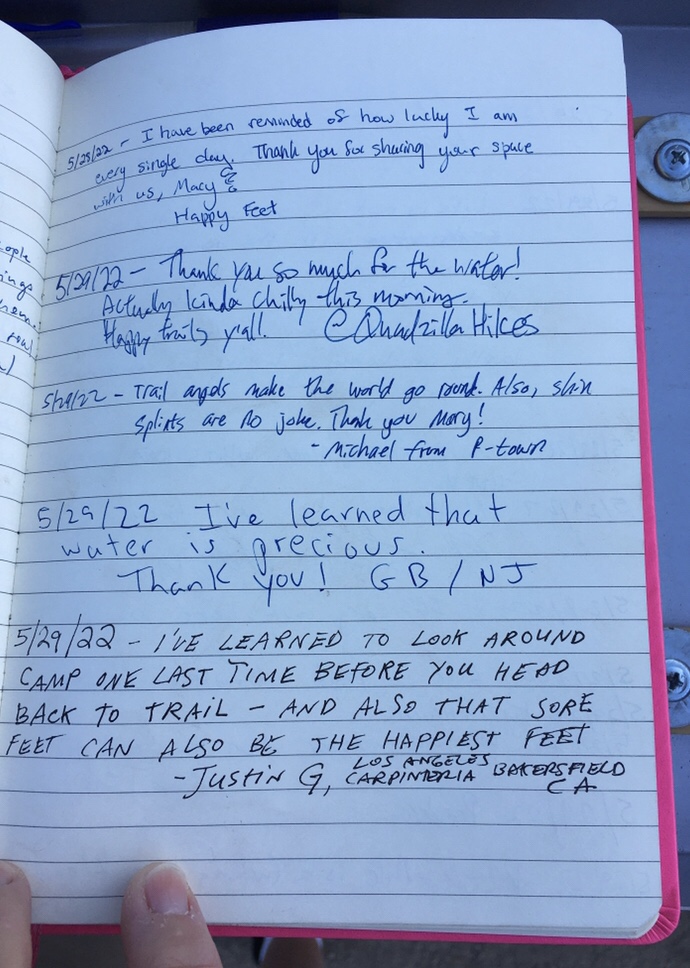 ople
ings
5/28/22 - I have been reminded of how lucky I am
every single day. Thank you for sharing your space
with us, Macy
Happy Feet
5/29/22 - Thank you so much for the water!
Actually kinda chilly this morning.
Happy trails y'all. @QuadzillaHikes
5/29/22 - Trail angels make the world go round. Also, shin
splints are no joke. Thank you Mary!
- Michael from P-town
5/29/22 I've learned that
water is precious.
Thank you! GB / NJ
5/29/22 - I'VE LEARNED TO LOOK AROUND
CAMP ONE LAST TIME BEFORE YOU HEAD
BACK TO TRAIL - AND ALSO THAT SORE
FEET CAN ALSO BE THE HAPPIEST FEET
- JUSTIN G, LOS ANGELES
CARPINTERIA BAKERSFIELD
CA